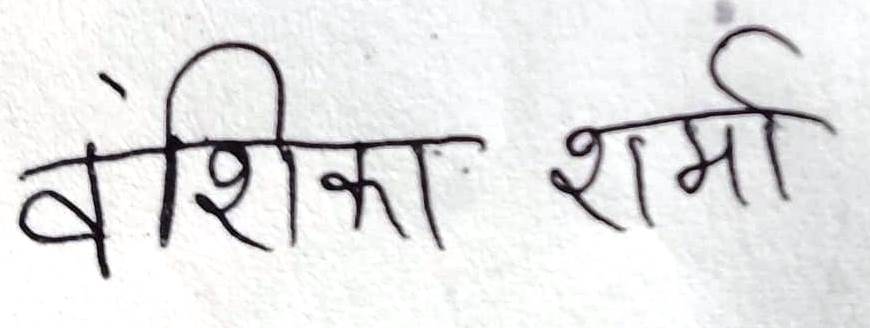 वंशिका शर्मा